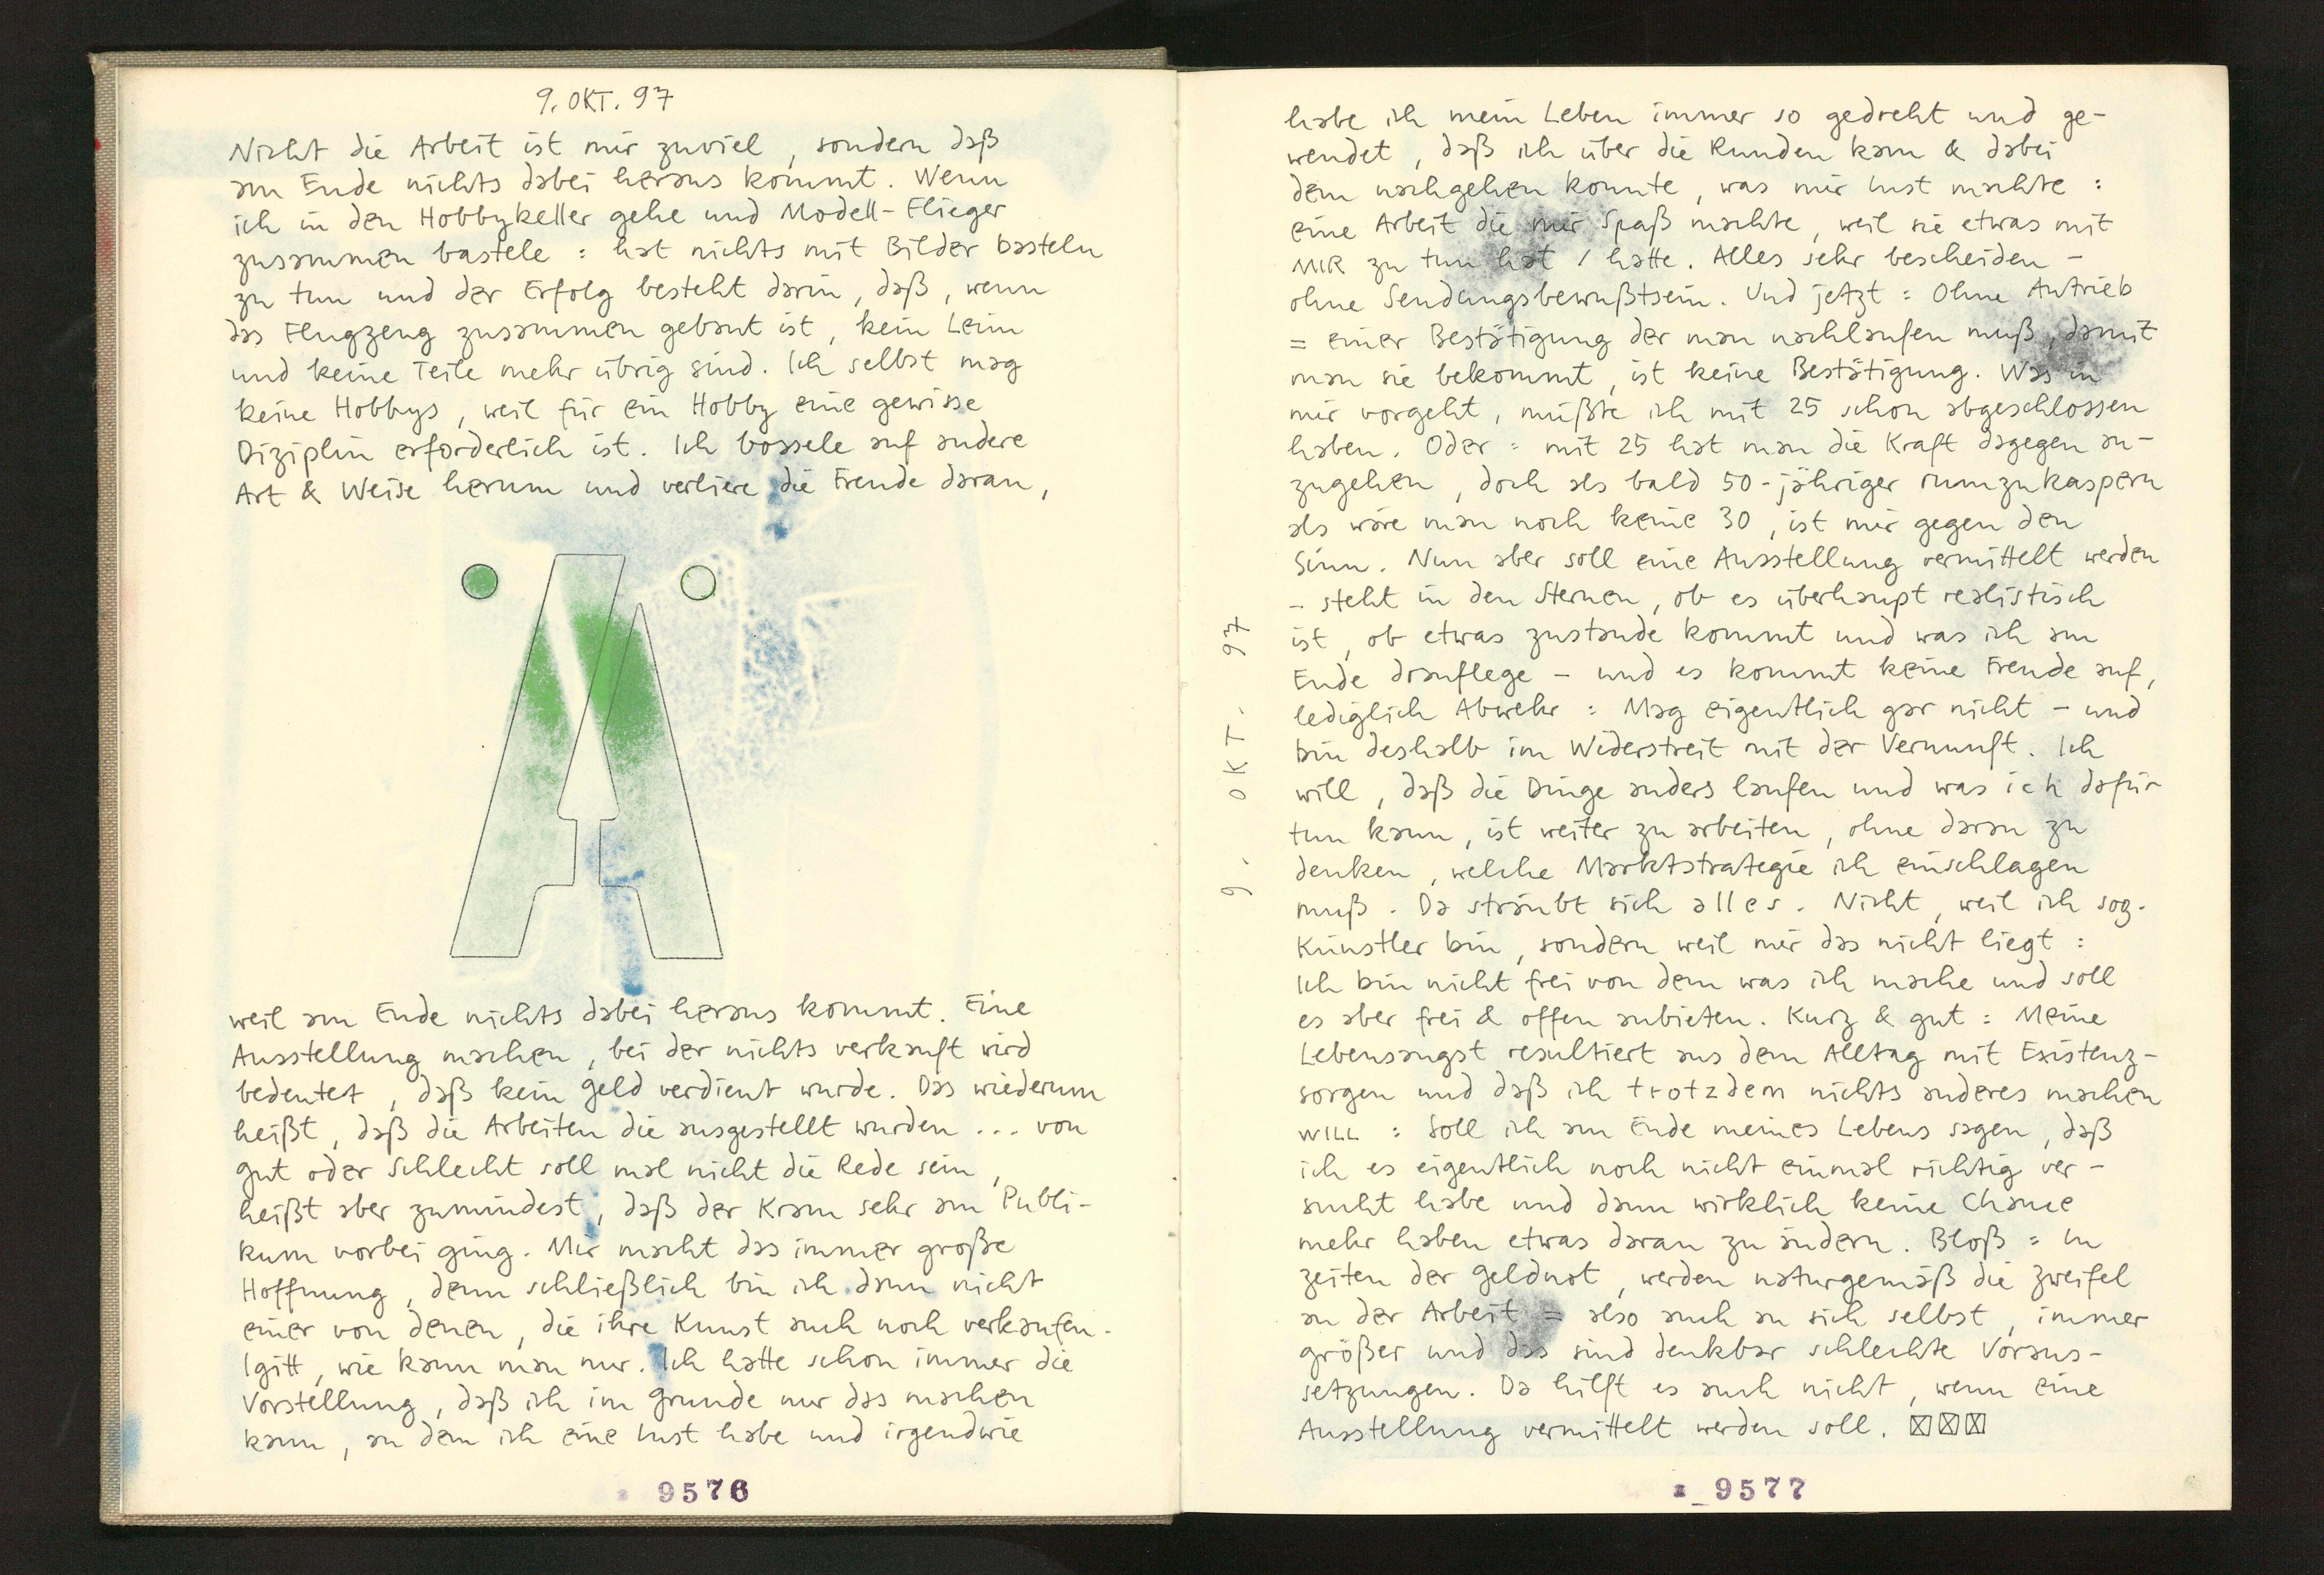 9. OKT. 97
Nicht die Arbeit ist mir zuviel, sondern daß
am Ende nichts dabei heraus kommt. Wenn
ich in den Hobbykeller gehe und Modell-Flieger
zusammen bastele : hat nichts mit Bilder basteln
zu tun und der Erfolg besteht darin, daß, wenn
das Flugzeug zusammen gebaut ist, kein Leim
und keine Teile mehr übrig sind. Ich selbst mag
keine Hobbys, weil für ein Hobby eine gewisse
Diziplin erforderlich ist. Ich bossele auf andere
Art & Weise herum und verliere die Freude daran,
weil am Ende nichts dabei heraus kommt. Eine
Ausstellung machen, bei der nichts verkauft wird
bedeutet, daß kein Geld verdient wurde. Das wiederum
heißt, daß die Arbeiten die ausgestellt wurden ... von
gut oder schlecht soll mal nicht die Rede sein,
heißt aber zumindest, daß der Kram sehr am Publi-
kum vorbei ging. Mir macht das immer große
Hoffnung, denn schließlich bin ich dann nicht
einer von denen, die ihre Kunst auch noch verkaufen.
Igitt, wie kann man nur. Ich hatte schon immer die
Vorstellung, daß ich im Grunde nur das machen
kann, an dem ich eine Lust habe und irgendwie
9576
9. OKT. 97
habe ich mein Leben immer so gedreht und ge-
wendet, daß ich über die Runden kam & dabei
dem nachgehen konnte, was mir Lust machte :
eine Arbeit die mir Spaß machte, weil sie etwas mit
MIR zu tun hat / hatte. Alles sehr bescheiden -
ohne Sendungsbewußtsein. Und jetzt : Ohne Antrieb
= einer Bestätigung der man nachlaufen muß, damit
man sie bekommt, ist keine Bestätigung. Was in
mir vorgeht, müßte ich mit 25 schon abgeschlossen
haben. Oder : mit 25 hat man die Kraft dagegen an-
zugehen, doch als bald 50-jähriger rumzukaspern
als wäre man noch keine 30, ist mir gegen den
Sinn. Nun aber soll eine Ausstellung vermittelt werden
- steht in den Sternen, ob es überhaupt realistisch
ist, ob etwas zustande kommt und was ich am
Ende drauflege - und es kommt keine Freude auf,
lediglich Abwehr : Mag eigentlich gar nicht - und
bin deshalb im Widerstreit mit der Vernunft. Ich
will, daß die Dinge anders laufen und was ich dafür
tun kann, ist weiter zu arbeiten, ohne daran zu
denken, welche Marktstrategie ich einschlagen
muß. Da sträubt sich alles. Nicht, weil ich sog.
Künstler bin, sondern weil mir das nicht liegt :
Ich bin nicht frei von dem was ich mache und soll
es aber frei & offen anbieten. Kurz & gut : Meine
Lebensangst resultiert aus dem Alltag mit Existenz-
sorgen und daß ich trotzdem nichts anderes machen
WILL : Soll ich am Ende meines Lebens sagen, daß
ich es eigentlich noch nicht einmal richtig ver-
sucht habe und dann wirklich keine Chance
mehr haben etwas daran zu ändern. Bloß : in
Zeiten der Geldnot, werden naturgemäß die Zweifel
an der Arbeit = also auch an sich selbst, immer
größer und das sind denkbar schlechte Voraus-
setzungen. Da hilft es auch nicht, wenn eine
Ausstellung vermittelt werden soll.
9577